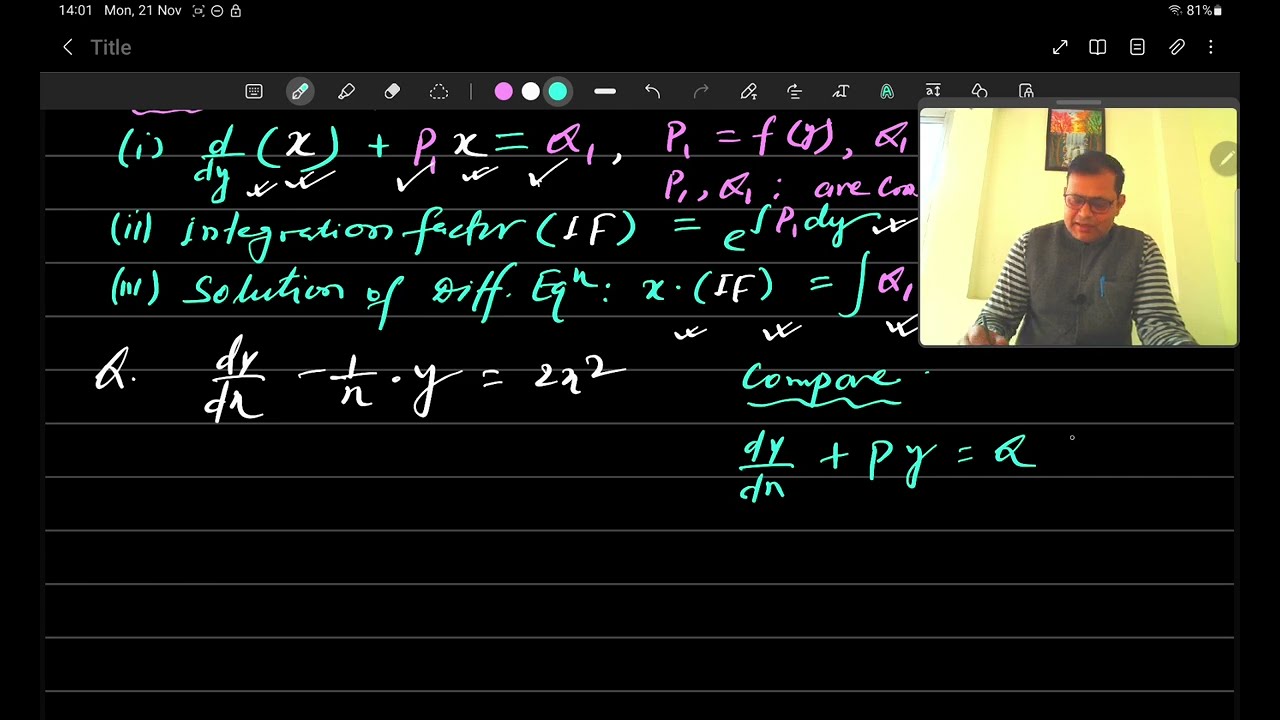 14:01 Mon, 21 Nov
81%
Title
(i) d/dy (x) + P₁ x = Q₁, P₁ = f(y), Q₁
P₁, Q₁ : are con
(ii) integration factor (IF) = e^∫P₁dy
(iii) Solution of Diff. Eqⁿ: x · (IF) = ∫ Q₁
Q. dy/dx - 1/x · y = 2x²
Compare :
dy/dx + Py = Q